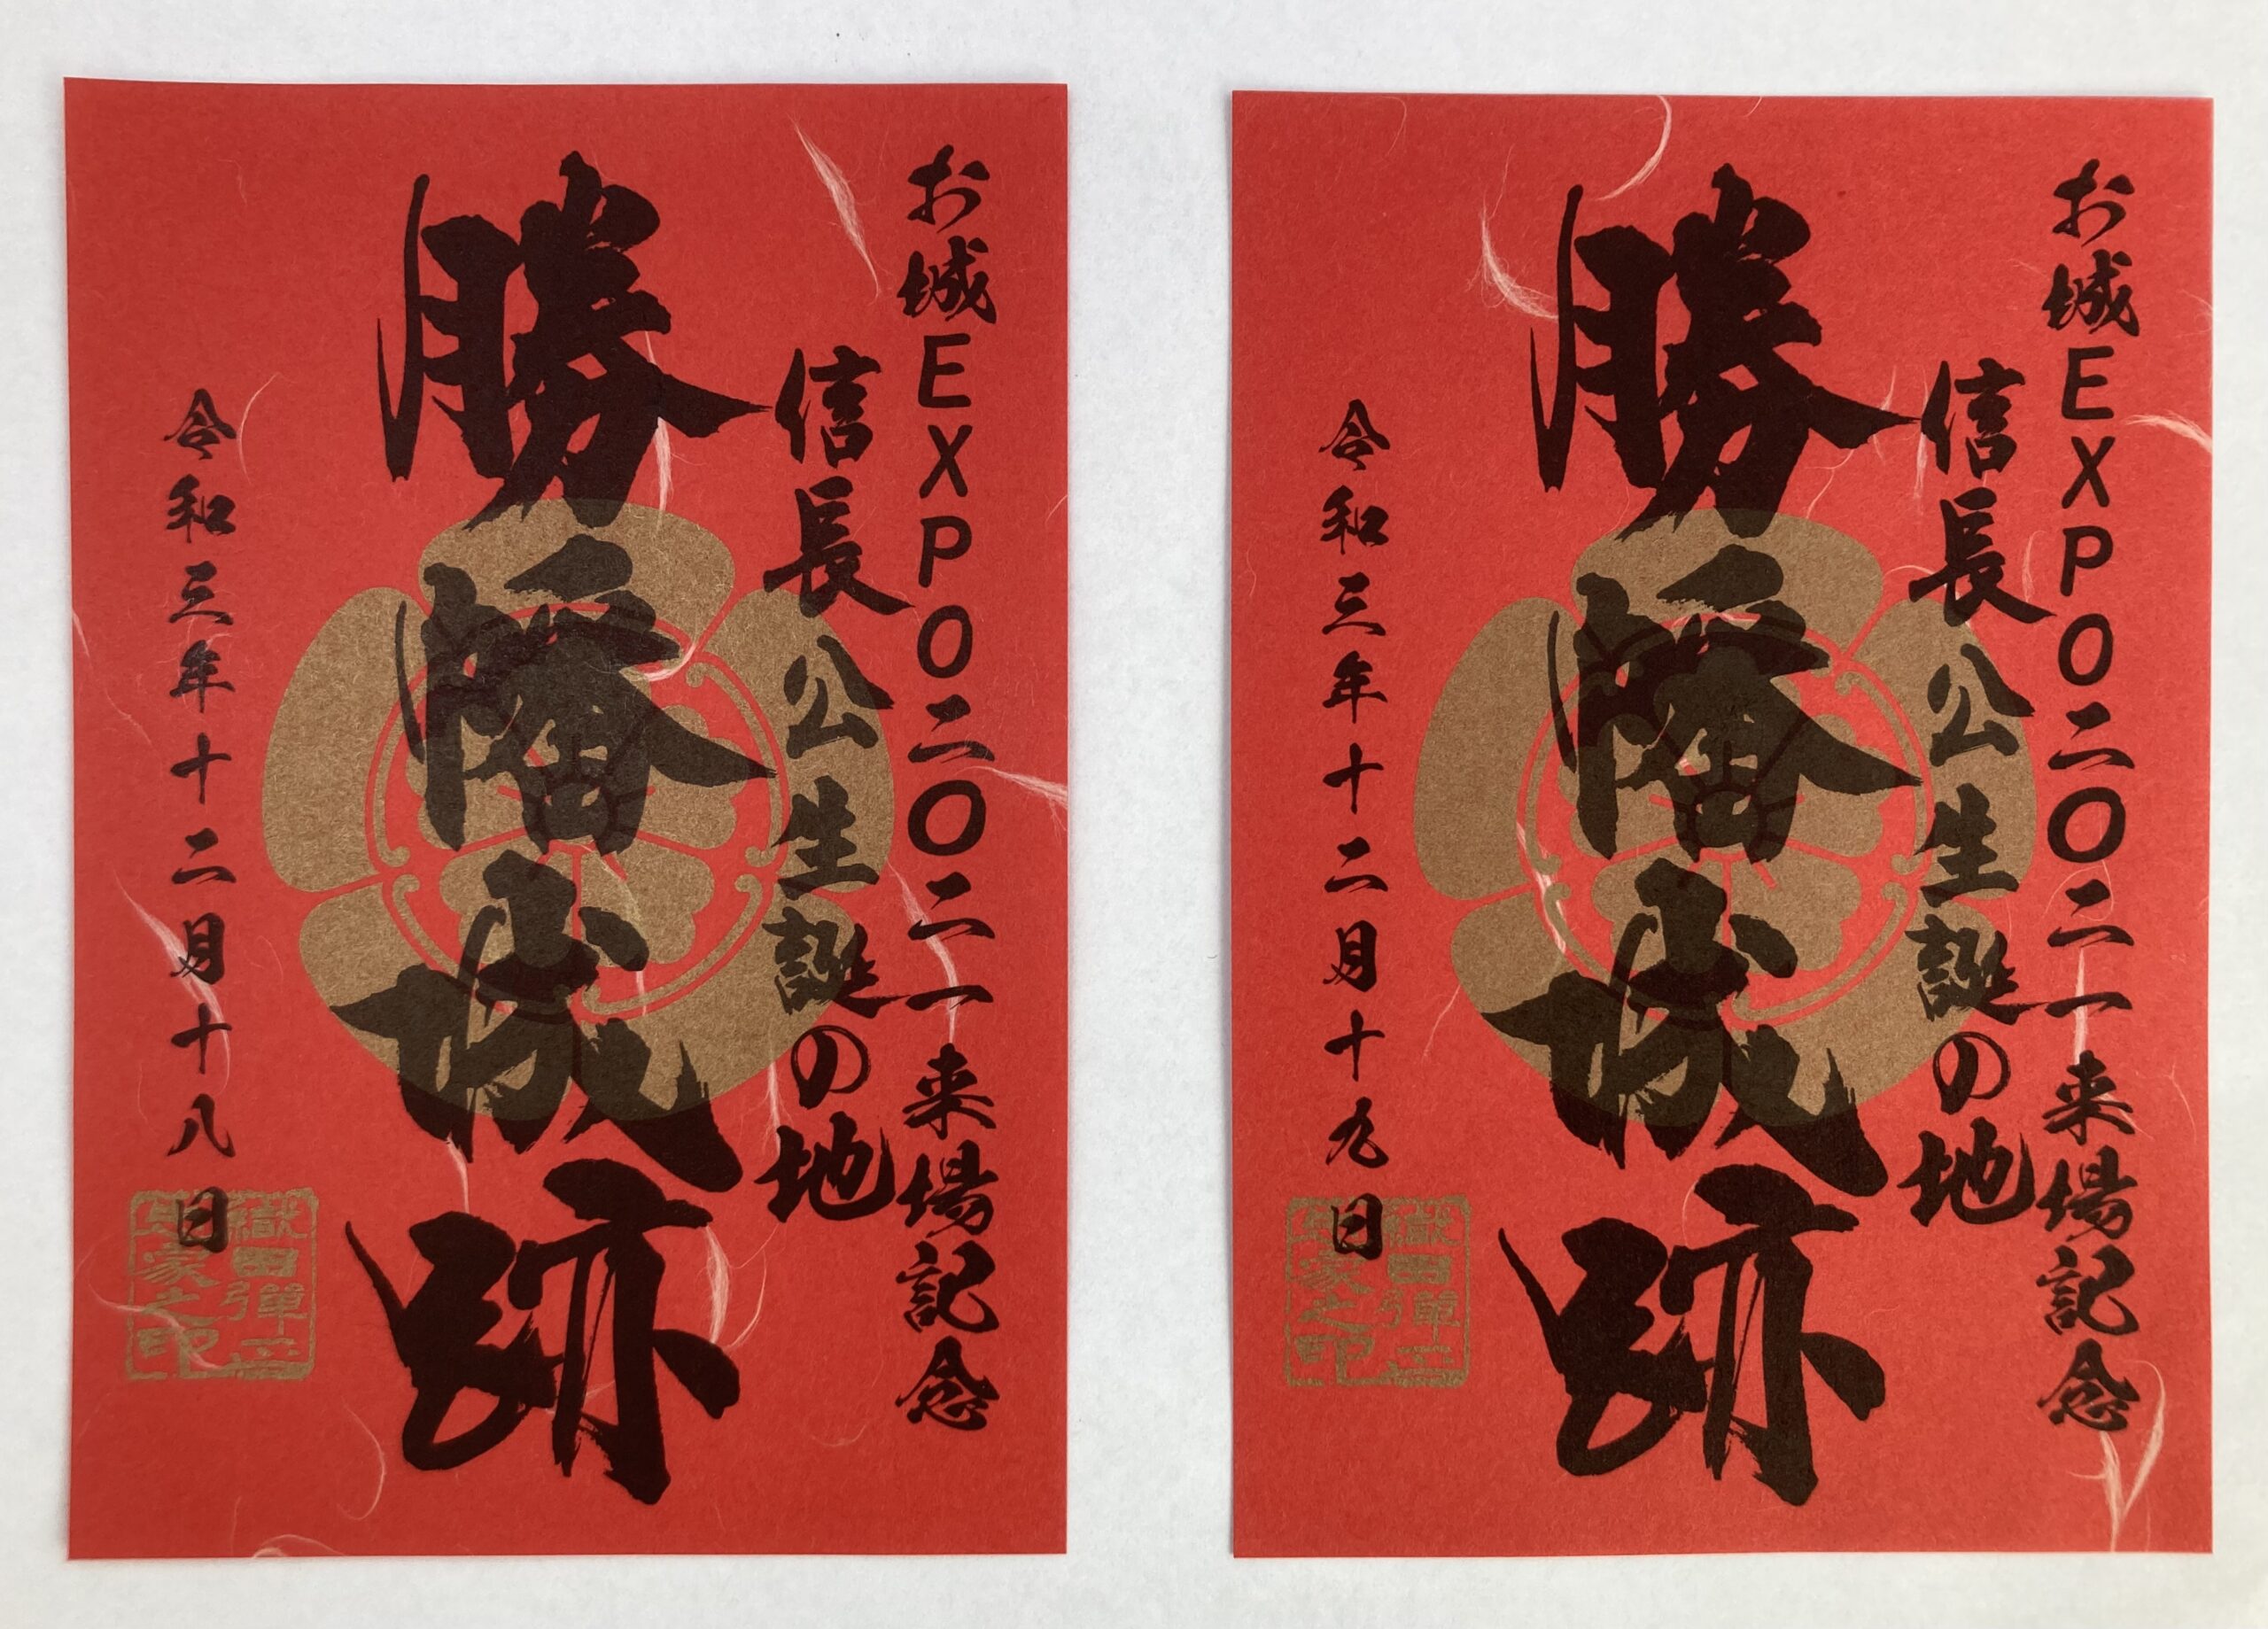 お城EXPO二〇二一来場記念
信長公生誕の地
勝幡城跡
令和三年十二月十八日
織田弾正
忠家之印
お城EXPO二〇二一来場記念
信長公生誕の地
勝幡城跡
令和三年十二月十九日
織田弾正
忠家之印